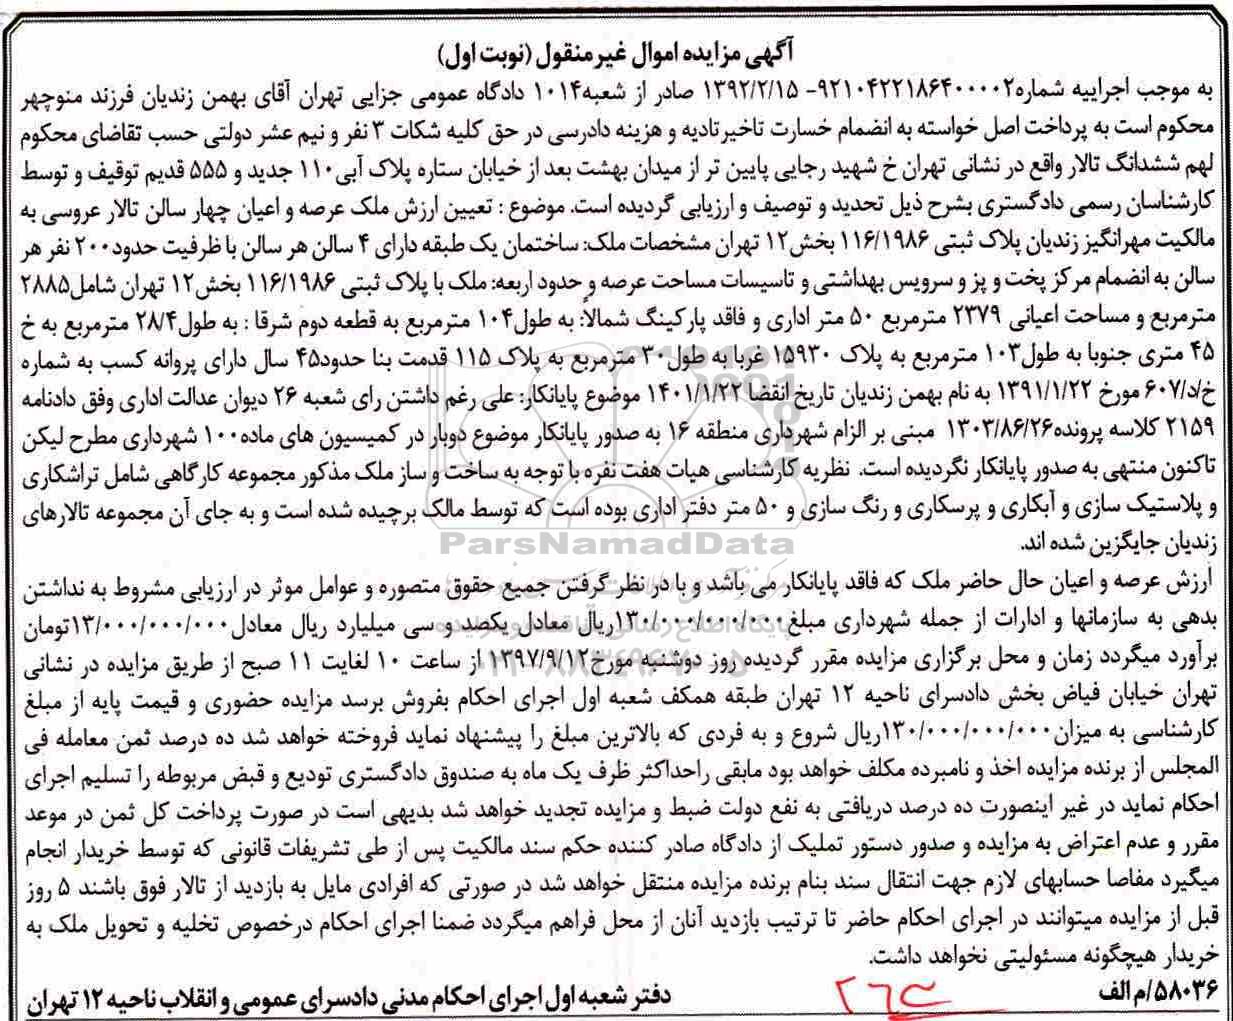 آگهی مزایده اموال غیرمنقول (نوبت اول)
به موجب اجراییه شماره۹۲۱۰۴۲۲۱۸۶۴۰۰۰۰۲- ۱۳۹۲/۲/۱۵ صادر از شعبه۱۰۱۴ دادگاه عمومی جزایی تهران آقای بهمن زندیان فرزند منوچهر
محکوم است به پرداخت اصل خواسته به انضمام خسارت تاخیرتادیه و هزینه دادرسی در حق کلیه شکات ۳ نفر و نیم عشر دولتی حسب تقاضای محکوم
لهم ششدانگ تالار واقع در نشانی تهران خ شهید رجایی پایین تر از میدان بهشت بعد از خیابان ستاره پلاک آبی۱۱۰ جدید و ۵۵۵ قدیم توقیف و توسط
کارشناسان رسمی دادگستری بشرح ذیل تحدید و توصیف و ارزیابی گردیده است. موضوع : تعیین ارزش ملک عرصه و اعیان چهار سالن تالار عروسی به
مالکیت مهرانگیز زندیان پلاک ثبتی ۱۱۶/۱۹۸۶ بخش۱۲ تهران مشخصات ملک: ساختمان یک طبقه دارای ۴ سالن هر سالن با ظرفیت حدود۲۰۰ نفر هر
سالن به انضمام مرکز پخت و پز و سرویس بهداشتی و تاسیسات مساحت عرصه و حدود اربعه: ملک با پلاک ثبتی ۱۱۶/۱۹۸۶ بخش۱۲ تهران شامل۲۸۸۵
مترمربع و مساحت اعیانی ۲۳۷۹ مترمربع ۵۰ متر اداری و فاقد پارکینگ شمالاً: به طول۱۰۴ مترمربع به قطعه دوم شرقا : به طول۲۸/۴ مترمربع به خ
۴۵ متری جنوبا به طول۱۰۳ مترمربع به پلاک ۱۵۹۳۰ غربا به طول۳۰ مترمربع به پلاک ۱۱۵ قدمت بنا حدود۴۵ سال دارای پروانه کسب به شماره
خ/د/۶۰۷ مورخ ۱۳۹۱/۱/۲۲ به نام بهمن زندیان تاریخ انقضا ۱۴۰۱/۱/۲۲ موضوع پایانکار: علی رغم داشتن رای شعبه ۲۶ دیوان عدالت اداری وفق دادنامه
۲۱۵۹ کلاسه پرونده۱۳۰۳/۸۶/۲۶ مبنی بر الزام شهرداری منطقه ۱۶ به صدور پایانکار موضوع دوبار در کمیسیون های ماده۱۰۰ شهرداری مطرح لیکن
تاکنون منتهی به صدور پایانکار نگردیده است. نظریه کارشناسی هیات هفت نفره با توجه به ساخت و ساز ملک مذکور مجموعه کارگاهی شامل تراشکاری
و پلاستیک سازی و آبکاری و پرسکاری و رنگ سازی و ۵۰ متر دفتر اداری بوده است که توسط مالک برچیده شده است و به جای آن مجموعه تالارهای
زندیان جایگزین شده اند.
ارزش عرصه و اعیان حال حاضر ملک که فاقد پایانکار می باشد و با در نظر گرفتن جمیع حقوق متصوره و عوامل موثر در ارزیابی مشروط به نداشتن
بدهی به سازمانها و ادارات از جمله شهرداری مبلغ۱۳۰/۰۰۰/۰۰۰/۰۰۰ریال معادل یکصد و سی میلیارد ریال معادل۱۳/۰۰۰/۰۰۰/۰۰۰تومان
برآورد میگردد زمان و محل برگزاری مزایده مقرر گردیده روز دوشنبه مورخ۱۳۹۷/۹/۱۲ از ساعت ۱۰ لغایت ۱۱ صبح از طریق مزایده در نشانی
تهران خیابان فیاض بخش دادسرای ناحیه ۱۲ تهران طبقه همکف شعبه اول اجرای احکام بفروش برسد مزایده حضوری و قیمت پایه از مبلغ
کارشناسی به میزان۱۳۰/۰۰۰/۰۰۰/۰۰۰ریال شروع و به فردی که بالاترین مبلغ را پیشنهاد نماید فروخته خواهد شد ده درصد ثمن معامله فی
المجلس از برنده مزایده اخذ و نامبرده مکلف خواهد بود مابقی راحداکثر ظرف یک ماه به صندوق دادگستری تودیع و قبض مربوطه را تسلیم اجرای
احکام نماید در غیر اینصورت ده درصد دریافتی به نفع دولت ضبط و مزایده تجدید خواهد شد بدیهی است در صورت پرداخت کل ثمن در موعد
مقرر و عدم اعتراض به مزایده و صدور دستور تملیک از دادگاه صادر کننده حکم سند مالکیت پس از طی تشریفات قانونی که توسط خریدار انجام
میگیرد مفاصا حسابهای لازم جهت انتقال سند بنام برنده مزایده منتقل خواهد شد در صورتی که افرادی مایل به بازدید از تالار فوق باشند ۵ روز
قبل از مزایده میتوانند در اجرای احکام حاضر تا ترتیب بازدید آنان از محل فراهم میگردد ضمنا اجرای احکام درخصوص تخلیه و تحویل ملک به
خریدار هیچگونه مسئولیتی نخواهد داشت.
۵۸۰۳۶/م الف
دفتر شعبه اول اجرای احکام مدنی دادسرای عمومی و انقلاب ناحیه ۱۲ تهران
ParsNamadData